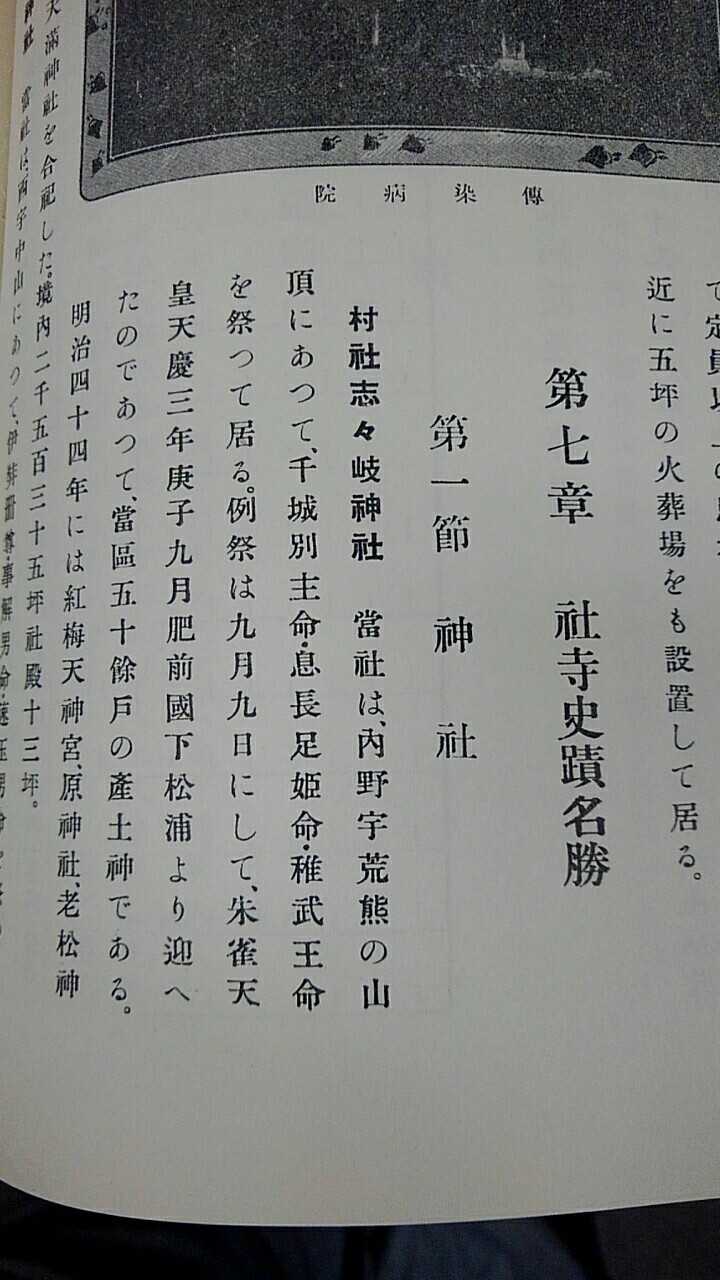 傳染病院
で定員
近に五坪の火葬場をも設置して居る。
第七章 社寺史蹟名勝
第一節 神社
村社志々岐神社 當社は、內野字荒熊の山
頂にあつて、千城別主命・息長足姫命・稚武王命
を祭つて居る。例祭は九月九日にして、朱雀天
皇天慶三年庚子九月肥前國下松浦より迎へ
たのであつて、當區五十餘戸の產土神である。
明治四十四年には紅梅天神宮、原神社、老松神
天滿神社を合祀した。境內二千五百三十五坪社殿十三坪。
神社 當社は、西字中山にあつて、伊弉册尊・事解男命・速玉男命